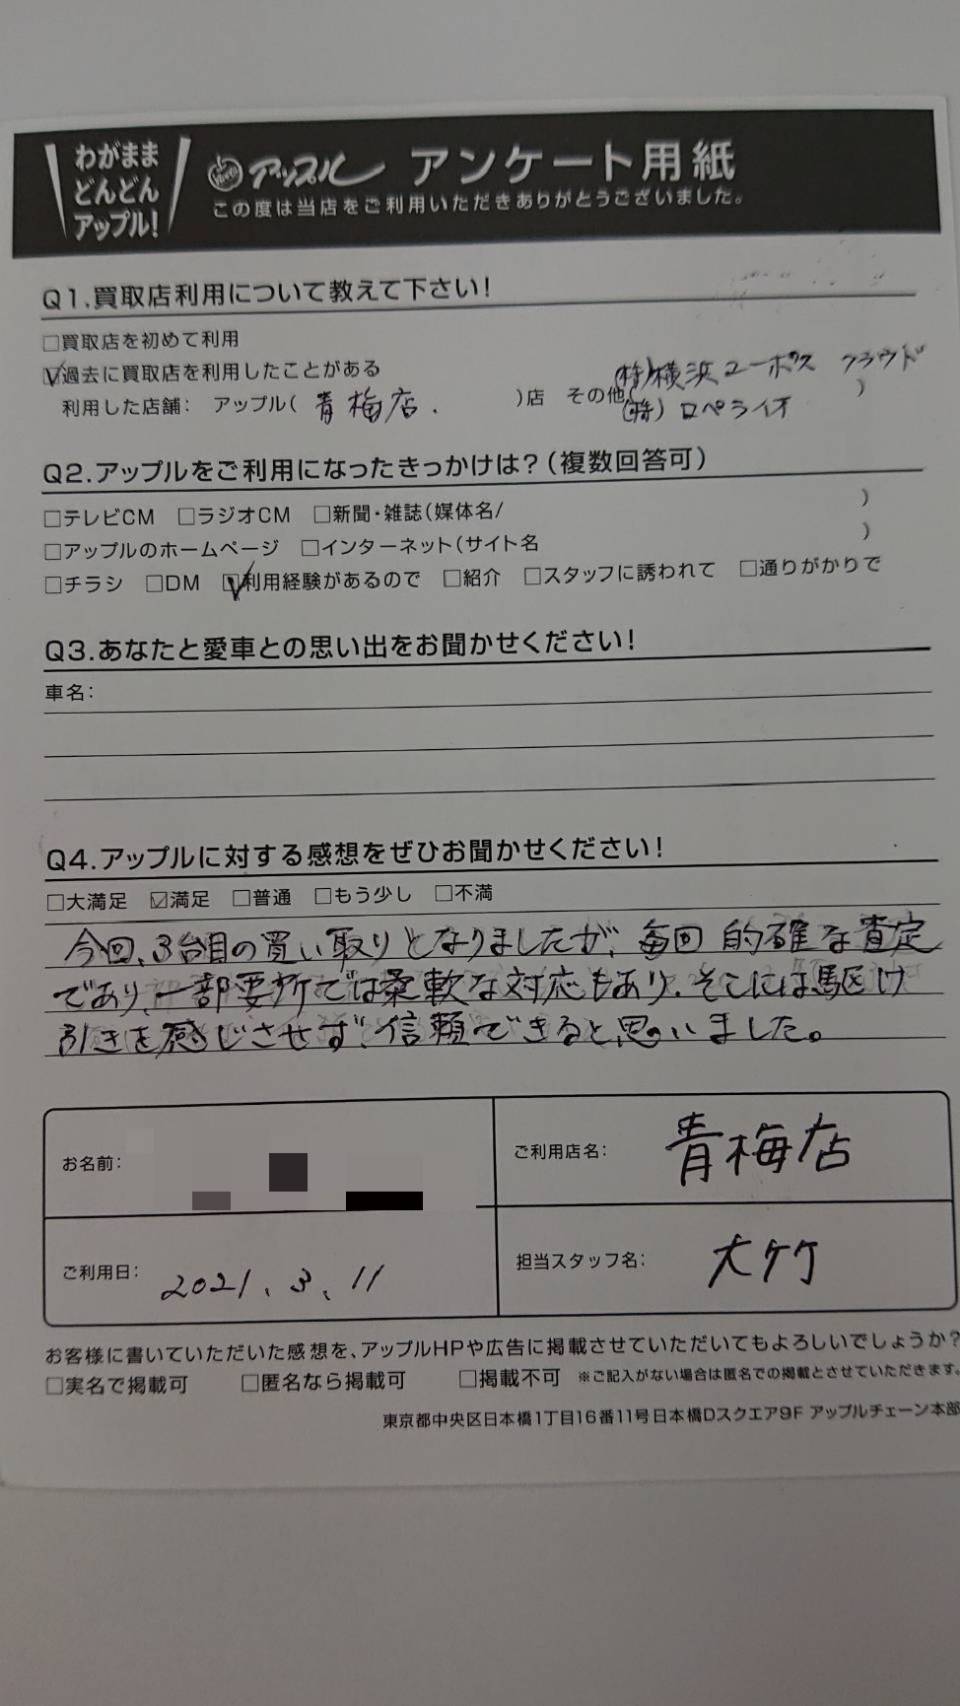 わがまま
どんどん
アップル!
アップル アンケート用紙
この度は当店をご利用いただきありがとうございました。
Q1.買取店利用について教えて下さい!
□買取店を初めて利用
☑過去に買取店を利用したことがある
(株)横浜ユーポス クラウド
利用した店舗: アップル( 青梅店. )店 その他( )
(株)ロペライオ
Q2.アップルをご利用になったきっかけは?(複数回答可)
□テレビCM □ラジオCM □新聞・雑誌(媒体名/ )
□アップルのホームページ □インターネット(サイト名 )
□チラシ □DM ☑利用経験があるので □紹介 □スタッフに誘われて □通りがかりで
Q3.あなたと愛車との思い出をお聞かせください!
車名:
Q4.アップルに対する感想をぜひお聞かせください!
□大満足 ☑満足 □普通 □もう少し □不満
今回、3台目の買い取りとなりましたが、毎回的確な査定
であり、一部要所では柔軟な対応もあり、そこには駆け
引きを感じさせず、信頼できると思いました。
お名前:
ご利用店名: 青梅店
ご利用日: 2021.3.11
担当スタッフ名: 大竹
お客様に書いていただいた感想を、アップルHPや広告に掲載させていただいてもよろしいでしょうか?
□実名で掲載可 □匿名なら掲載可 □掲載不可 ※ご記入がない場合は匿名での掲載とさせていただきます。
東京都中央区日本橋1丁目16番11号日本橋Dスクエア9F アップルチェーン本部